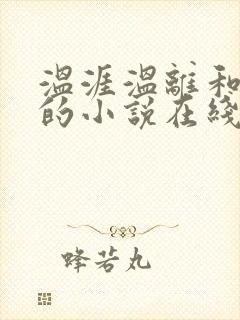 温涯温離和
的小説在綫
蜂若丸